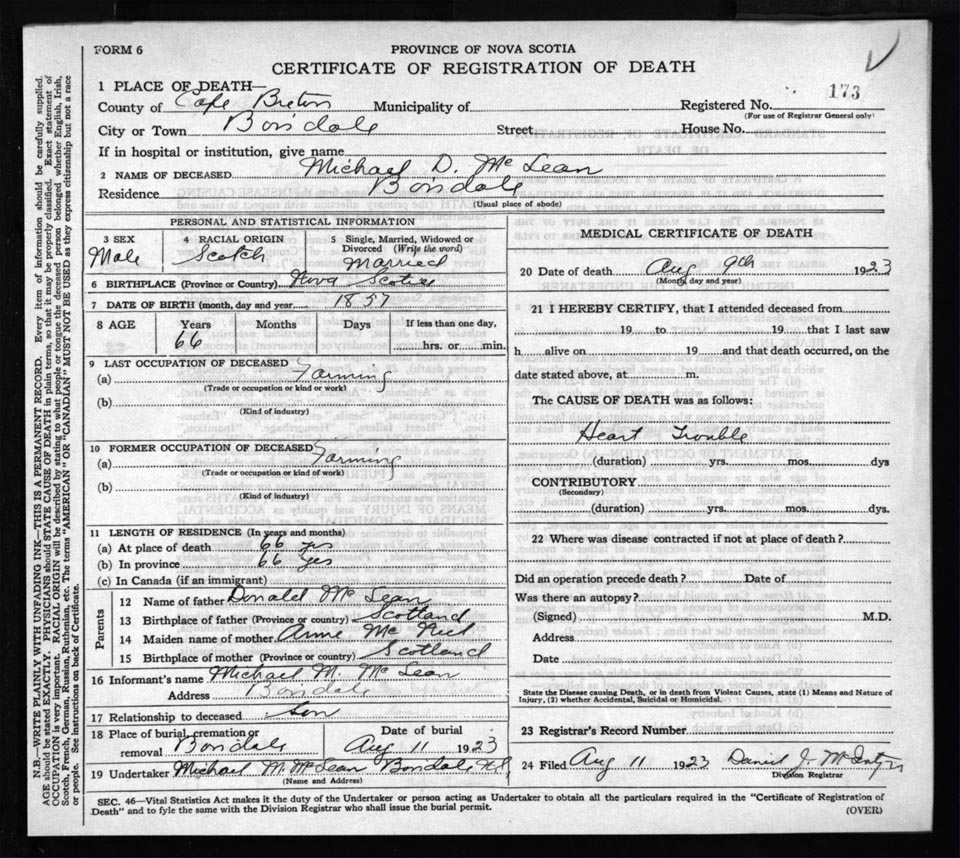 FORM 6
PROVINCE OF NOVA SCOTIA
CERTIFICATE OF REGISTRATION OF DEATH
1 PLACE OF DEATH—
County of Cape Breton Municipality of Registered No. 173
(For use of Registrar General only)
City or Town Boisdale Street House No.
If in hospital or institution, give name
2 NAME OF DECEASED Michael D. McLean
Residence Boisdale
(Usual place of abode)
PERSONAL AND STATISTICAL INFORMATION
3 SEX 4 RACIAL ORIGIN 5 Single, Married, Widowed or Divorced (Write the word)
Male Scotch Married
6 BIRTHPLACE (Province or Country) Nova Scotia
7 DATE OF BIRTH (month, day and year) 1857
8 AGE Years Months Days If less than one day,
66 hrs. or min.
9 LAST OCCUPATION OF DECEASED
(a) Farming
(Trade or occupation or kind or work)
(b)
(Kind of industry)
10 FORMER OCCUPATION OF DECEASED
(a) Farming
(Trade or occupation or kind of work)
(b)
(Kind of industry)
11 LENGTH OF RESIDENCE (In years and months)
(a) At place of death 66 yrs
(b) In province 66 yrs
(c) In Canada (if an immigrant)
Parents
12 Name of father Donald McLean
13 Birthplace of father (Province or country) Scotland
14 Maiden name of mother Anne McNeil
15 Birthplace of mother (Province or country) Scotland
16 Informant's name Michael M. McLean
Address Boisdale
17 Relationship to deceased Son
18 Place of burial, cremation or Date of burial
removal Boisdale Aug 11 1923
19 Undertaker Michael M. McLean Boisdale N.S.
(Name and Address)
MEDICAL CERTIFICATE OF DEATH
20 Date of death Aug 9th 1923
(Month, day and year)
21 I HEREBY CERTIFY, that I attended deceased from
19 to 19 that I last saw
h alive on 19 and that death occurred, on the
date stated above, at m.
The CAUSE OF DEATH was as follows:
Heart Trouble
(duration) yrs. mos. dys
CONTRIBUTORY
(Secondary)
(duration) yrs. mos. dys.
22 Where was disease contracted if not at place of death?
Did an operation precede death? Date of
Was there an autopsy?
(Signed) M.D.
Address
Date
State the Disease causing Death, or in death from Violent Causes, state (1) Means and Nature of
Injury, (2) whether Accidental, Suicidal or Homicidal.
23 Registrar's Record Number
24 Filed Aug 11 1923 Daniel J. McIntyre
Division Registrar
SEC. 46—Vital Statistics Act makes it the duty of the Undertaker or person acting as Undertaker to obtain all the particulars required in the "Certificate of Registration of
Death" and to fyle the same with the Division Registrar who shall issue the burial permit. (OVER)
N.B.—WRITE PLAINLY WITH UNFADING INK—THIS IS A PERMANENT RECORD. Every item of information should be carefully supplied.
AGE should be stated EXACTLY. PHYSICIANS should STATE CAUSE OF DEATH in plain terms, so that it may be properly classified. Exact statement of
OCCUPATION is very important. RACIAL ORIGIN will be described by stating to what people or tongue the deceased person belonged, whether English, Irish,
Scotch, French, German, Russian, Ruthenian, etc. The terms "AMERICAN" OR "CANADIAN" MUST NOT BE USED as they express citizenship but not a race
or people. See instructions on back of Certificate.